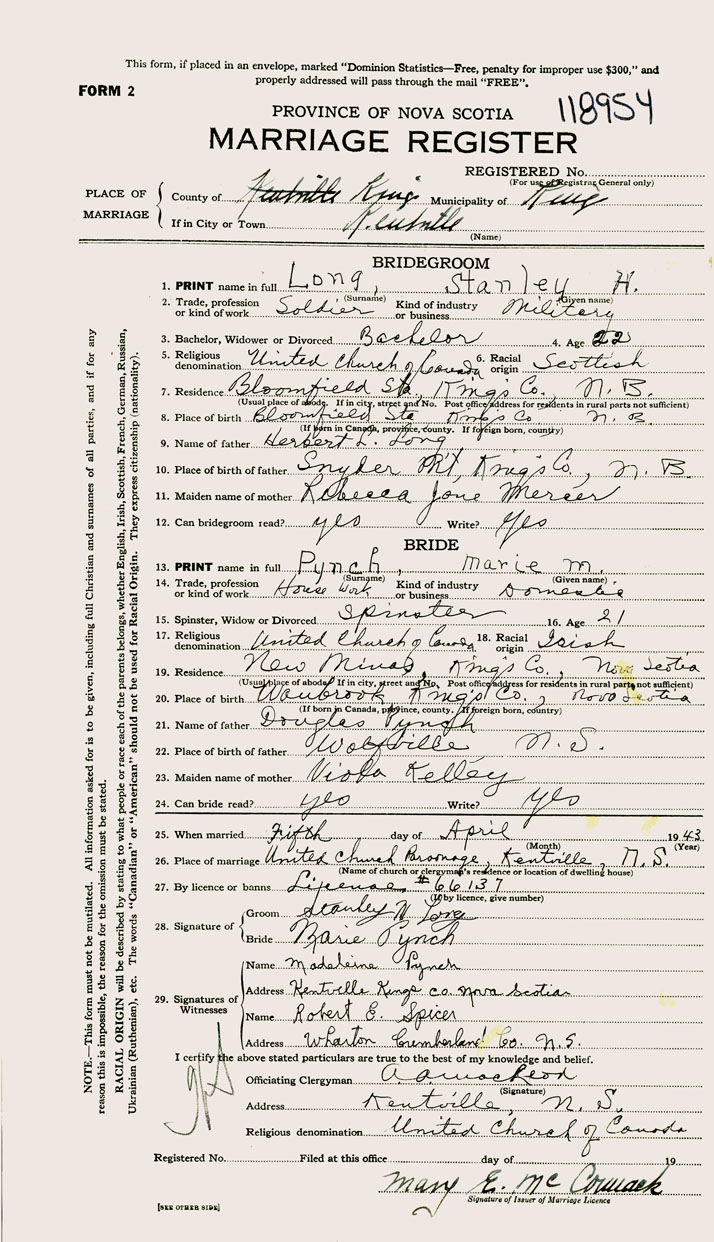 This form, if placed in an envelope, marked "Dominion Statistics—Free, penalty for improper use $300," and
properly addressed will pass through the mail "FREE".
FORM 2
118954
PROVINCE OF NOVA SCOTIA
MARRIAGE REGISTER
REGISTERED No.
(For use of Registrar General only)
PLACE OF MARRIAGE
County of Kentville Kings Municipality of Kings
If in City or Town Kentville
(Name)
BRIDEGROOM
1. PRINT name in full Long, Stanley H.
(Surname) (Given name)
2. Trade, profession or kind of work Soldier Kind of industry or business Military
3. Bachelor, Widower or Divorced Bachelor 4. Age 22
5. Religious denomination United Church of Canada 6. Racial origin Scottish
7. Residence Bloomfield Sta., King's Co., N. B.
(Usual place of abode. If in city, street and No. Post office address for residents in rural parts not sufficient)
8. Place of birth Bloomfield Sta Kings Co N. B.
(If born in Canada, province, county. If foreign born, county)
9. Name of father Herbert L. Long
10. Place of birth of father Snyder Mt, King's Co., N. B.
11. Maiden name of mother Rebecca Jane Mercer
12. Can bridegroom read? yes Write? Yes
BRIDE
13. PRINT name in full Pynch, Marie M.
(Surname) (Given name)
14. Trade, profession or kind of work House Work Kind of industry or business Domestic
15. Spinster, Widow or Divorced Spinster 16. Age 21
17. Religious denomination United Church of Canada 18. Racial origin Irish
19. Residence New Minas, King's Co., Nova Scotia
(Usual place of abode. If in city, street and No. Post office address for residents in rural parts not sufficient)
20. Place of birth King's Co., Nova Scotia
(If born in Canada, province, county. If foreign born, country)
21. Name of father Douglas Pynch
22. Place of birth of father Wolfville N. S.
23. Maiden name of mother Viola Kelley
24. Can bride read? yes Write? Yes
25. When married Fifth day of April 1943
(Month) (Year)
26. Place of marriage United Church Parsonage, Kentville, N. S.
(Name of church or clergyman's residence or location of dwelling house)
27. By licence or banns License #66137
(If by licence, give number)
28. Signature of
Groom Stanley H Long
Bride Marie Pynch
29. Signatures of Witnesses
Name Madeleine Pynch
Address Kentville Kings co. Nova Scotia
Name Robert E. Spicer
Address Wharton Cumberland Co. N. S.
I certify the above stated particulars are true to the best of my knowledge and belief.
Officiating Clergyman A. A. MacLeod
(Signature)
Address Kentville, N. S.
Religious denomination United Church of Canada
Registered No. Filed at this office day of 19
Mary E. McCormack
Signature of Issuer of Marriage Licence
[SEE OTHER SIDE]
NOTE.—This form must not be mutilated. All information asked for is to be given, including full Christian and surnames of all parties, and if for any
reason this is impossible, the reason for the omission must be stated.
RACIAL ORIGIN will be described by stating to what people or race each of the parents belongs, whether English, Irish, Scottish, French, German, Russian,
Ukrainian (Ruthenian), etc. The words "Canadian" or "American" should not be used for Racial Origin. They express citizenship (nationality).